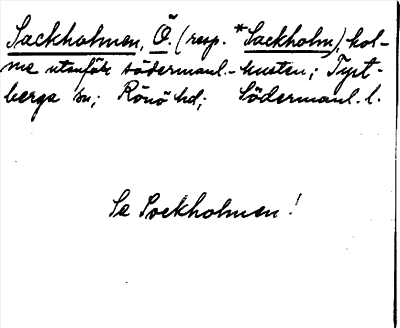 Sackholmen, Ö. (resp. *Sackholm), hol-
me utanför södermanl.-kusten; Tyst-
berga sn; Rönö hd; Södermanl. l.
Se Sockholmen!